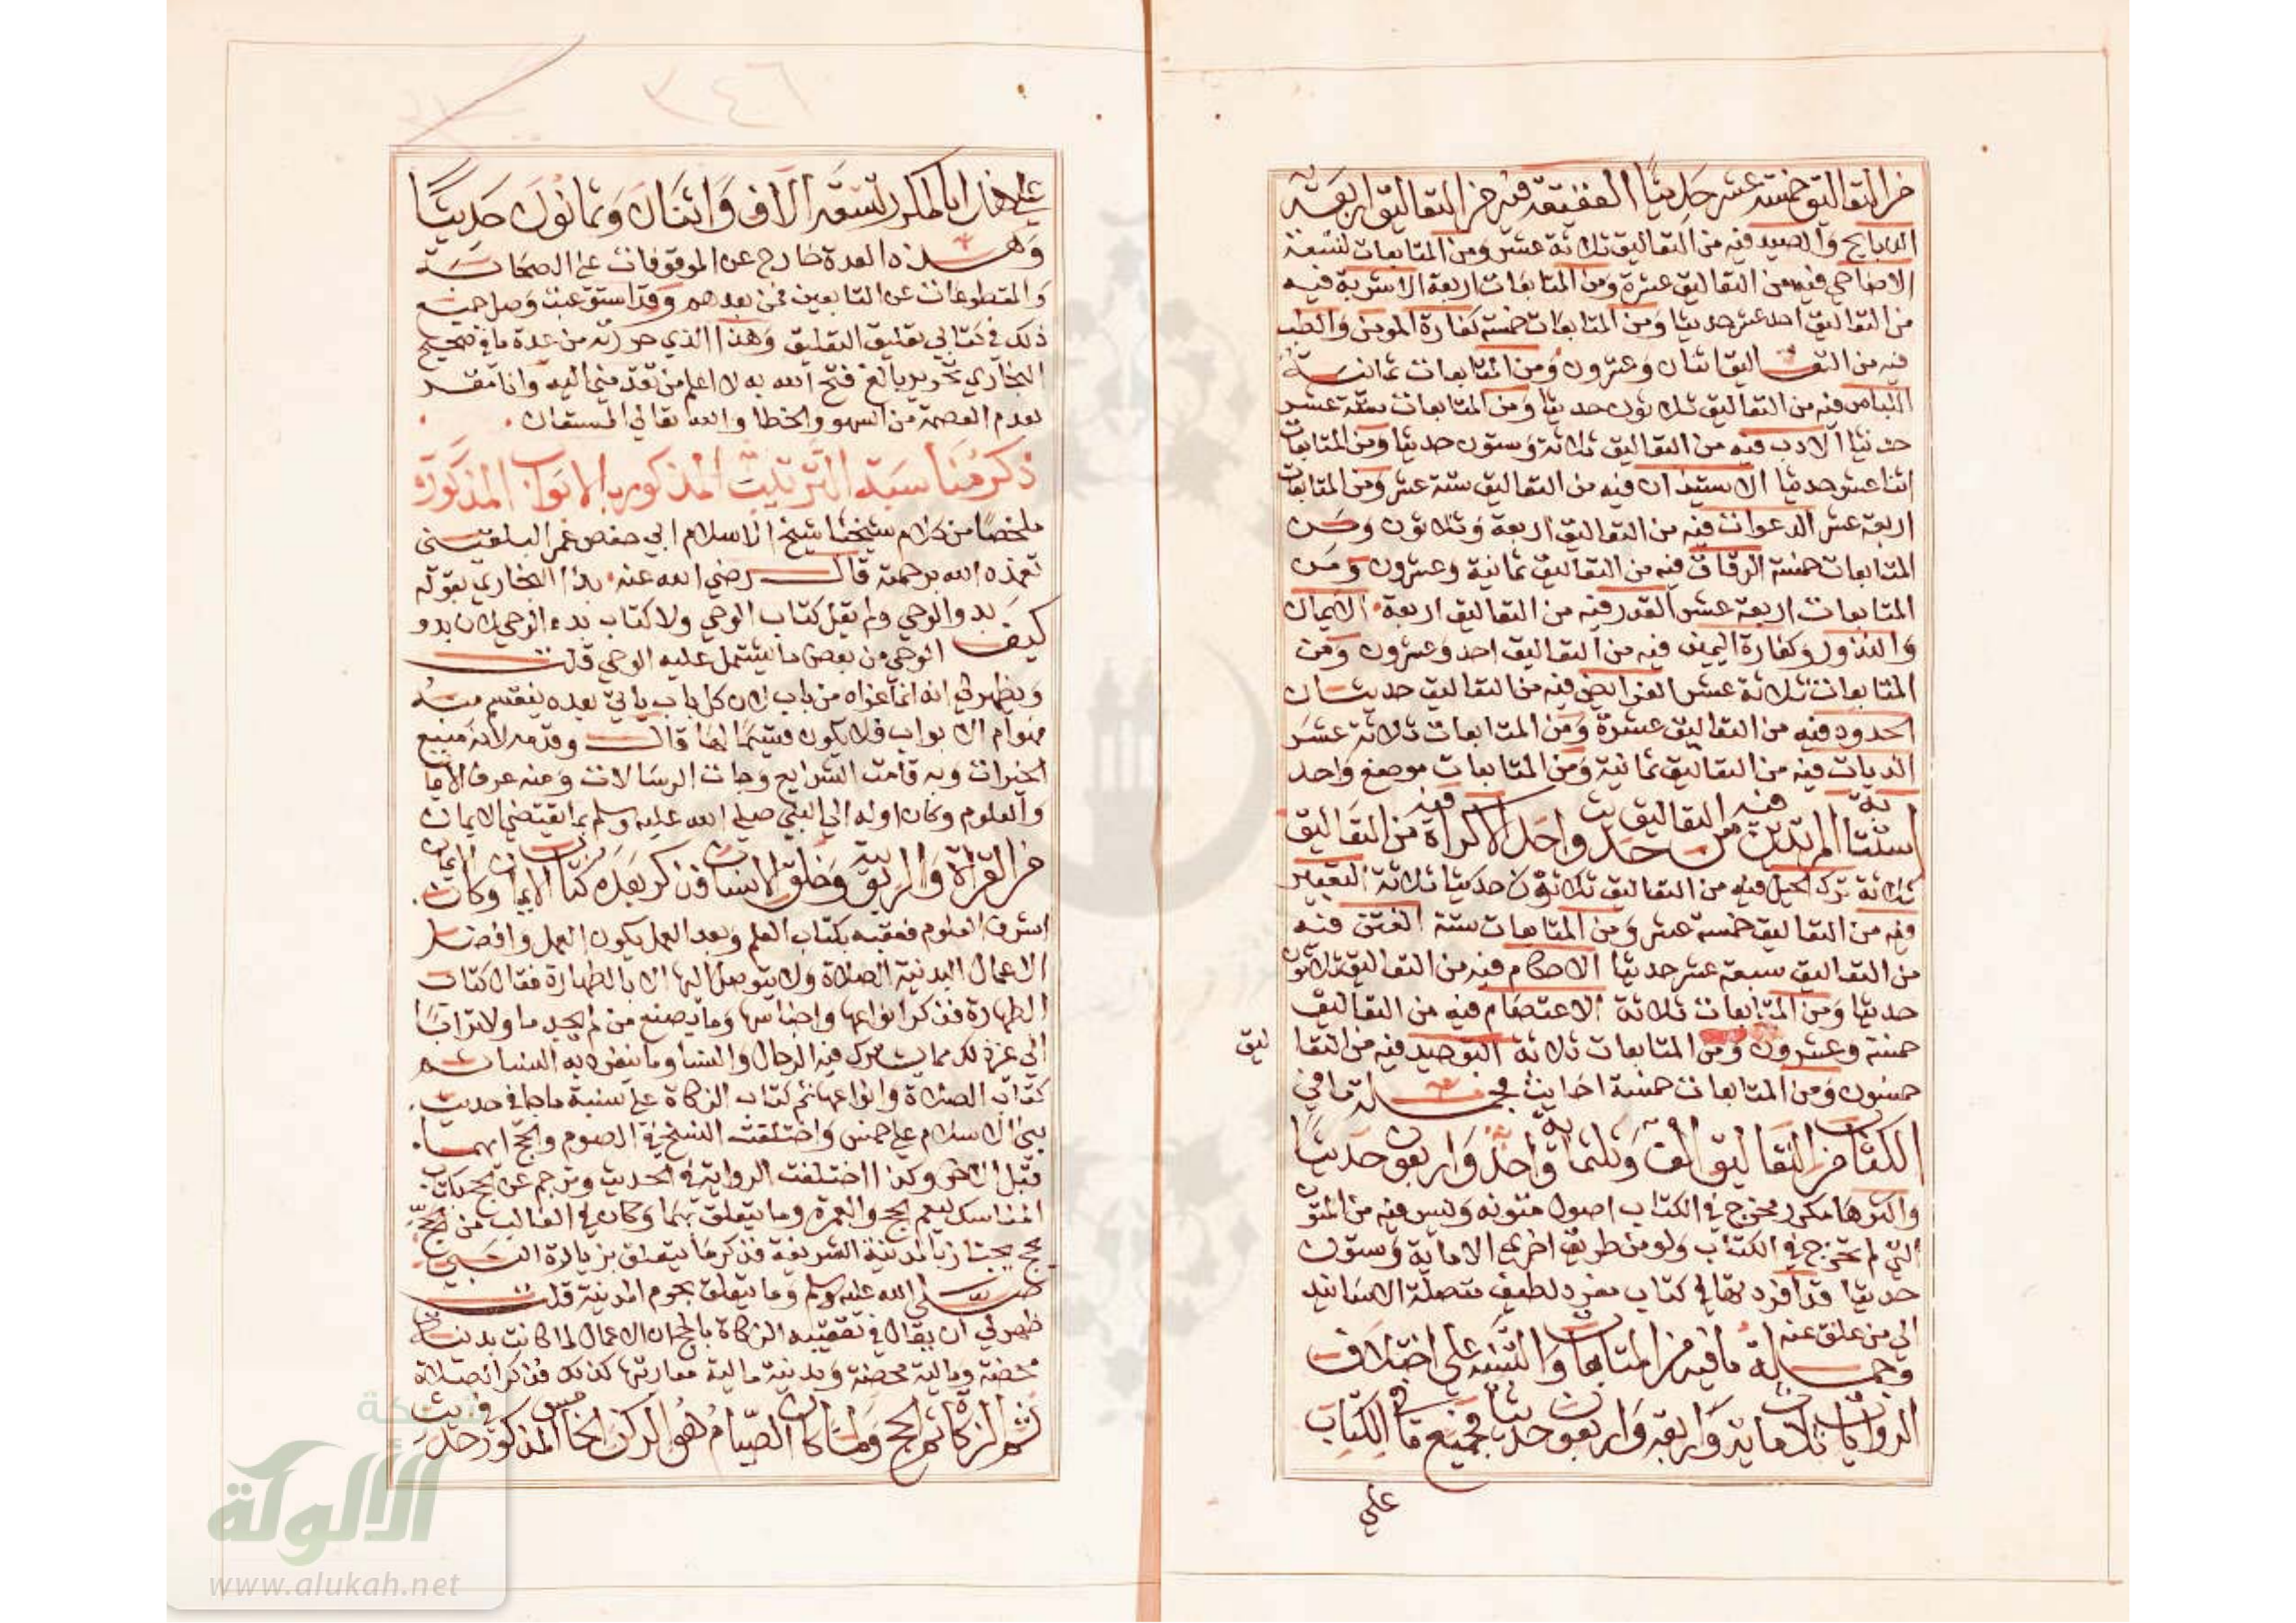 من التعاليق خمسة عشر حديثا العقيقة فيه من التعاليق اربعة
الذبايح والصيد فيه من التعاليق ثلاثة عشر ومن المتابعات تسعة
الاضاحي فيه من التعاليق عشرة ومن المتابعات اربعة الاشربة فيه
من التعاليق احد عشر حديثا ومن المتابعات خمسة كفارة المومن والطب
فيه من التعاليق اثنان وعشرون ومن المتابعات ثمانية
اللباس فيه من التعاليق ثلاثون حديثا ومن المتابعات سبعة عشر
حديثا الادب فيه من التعاليق ثلاثة وستون حديثا ومن المتابعات
اثنا عشر حديثا الاستيذان فيه من التعاليق ستة عشر ومن المتابعات
اربعة عشر الدعوات فيه من التعاليق اربعة وثلاثون ومن
المتابعات خمسة الرقاق فيه من التعاليق ثمانية وعشرون ومن
المتابعات اربعة عشر القدر فيه من التعاليق اربعة الايمان
والنذور وكفارة اليمين فيه من التعاليق احد وعشرون ومن
المتابعات ثلاثة عشر الفرايض فيه من التعاليق حديثان
الحدود فيه من التعاليق عشرة ومن المتابعات ثلاثة عشر
الديات فيه من التعاليق ثمانية ومن المتابعات موضع واحد
استتابة المرتدين فيه من التعاليق حديث واحد الاكراه فيه من التعاليق
ثلاثة ترك الحيل فيه من التعاليق ثلاثون حديثا ثلاثة التعبير
فيه من التعاليق خمسة عشر ومن المتابعات ستة الفتن فيه
من التعاليق سبعة عشر حديثا الاحكام فيه من التعاليق ثلاثون
حديثا ومن المتابعات ثلاثة الاعتصام فيه من التعاليق
خمسة وعشرون ومن المتابعات ثلاثة التوحيد فيه من التعا
ليق
خمسون ومن المتابعات خمسة احاديث فجملة ما في
الكتاب من التعاليق الف وثلثماية واحد واربعون حديثا
واكثرها مكرر مخرج في الكتاب اصول متونه وليس فيه من المتون
التي لم تخرج في الكتاب ولو من طريق اخرى الا ماية وستون
حديثا قد افردتها في كتاب مفرد لطيف متصلة الاسانيد
الى من علق عنه
وجملة ما فيه من المتابعات والتنبيه على اختلاف
الروايات ثلاثماية واربعة واربعون حديثا فجميع ما في الكتاب
على
على هذا بالمكرر تسعة الاف واثنان وثمانون حديثا
وهذه العدة خارج عن الموقوفات على الصحابة
والمقطوعات عن التابعين فمن بعدهم وقد استوعبت وصل جميع
ذلك في كتابي تغليق التعليق وهذا الذي حررته من عدة ما في صحيح
البخاري تحرير بالغ فتح الله به لا اعلم من تقدمني اليه وانا مقر
بعدم العصمة من السهو والخطا والله تعالى المستعان
ذكر مناسبة الترتيب المذكور بالابواب المذكورة
ملخصا من كلام شيخنا شيخ الاسلام ابي حفص عمر البلقيني
تغمده الله برحمته قال رضي الله عنه بدا البخاري بقوله
كيف بدو الوحي ولم يقل كتاب الوحي ولا كتاب بدء الوحي لان بدو
الوحي من بعض ما يشتمل عليه الوحي قلت
ويظهر لي انه انما عراه من باب لان كل باب ياتي بعده ينقسم منه
فهو ام الابواب فلا يكون قسيما لها قال وقدمه لانه منبع
الخيرات وبه قامت الشرايع وجات الرسالات ومنه عرف الايمان
والعلوم وكان اوله الى النبي صلى الله عليه وسلم بما يقتضي الايمان
من القراة والربوبية وخلق الانسان فذكر بعده كتاب الايمان وكان
اشرف العلوم فعقبه بكتاب العلم وبعد العمل يكون العمل وافضل
الاعمال البدنية الصلاة ولا يتوصل اليها الا بالطهارة فقال كتاب
الطهارة فذكر انواعها واجناسها وما يصنع من لم يجد ما ولا ترابا
الى غير ذلك مما يشترك فيه الرجال والنسا وما ينفرد به النسا ثم
كتاب الصلاة وانواعها ثم كتاب الزكاة على نسبة ما جا في حديث
بني الاسلام على خمس واختلفت النسخ في الصوم والحج ايهما
قبل الاخر وكذا اختلفت الرواية في الحديث وترجم عن الحج بكتاب
المناسك ليعم الحج والعمرة وما يتعلق بهما وكان في الغالب من يحج
يجتاز بالمدينة الشريفة فذكر ما يتعلق بزيارة النبي
صلى الله عليه وسلم وما يتعلق بحرم المدينة قلت
ظهر لي ان يقال في تعقيبه الزكاة بالحج ان الاعمال لما كانت بدنية
محضة ومالية محضة وبدنية مالية معا رتبها كذلك فذكر الصلاة
ثم الزكاة ثم الحج ولما كان الصيام هو الركن الخامس المذكور في حديث
٣٤٦
شبكة
الألوكة
www.alukah.net